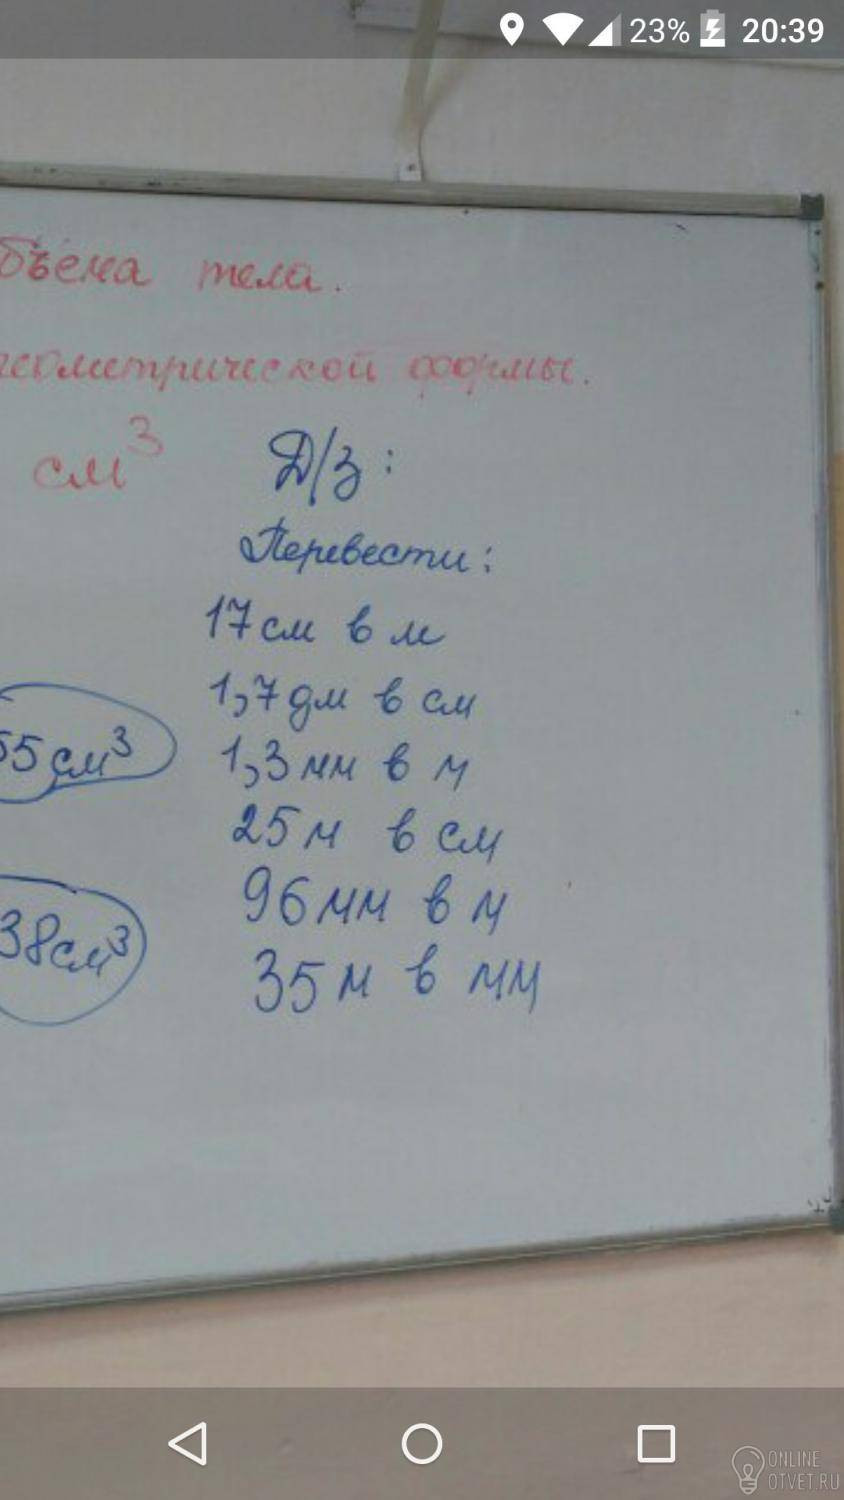 23% 20:39
бъёма тела.
геометрической формы.
см³
Д/з:
Перевести:
17см в м
1,7дм в см
55см³
1,3мм в м
25м в см
96мм в м
38см³
35м в мм
ONLINE
OTVET.RU